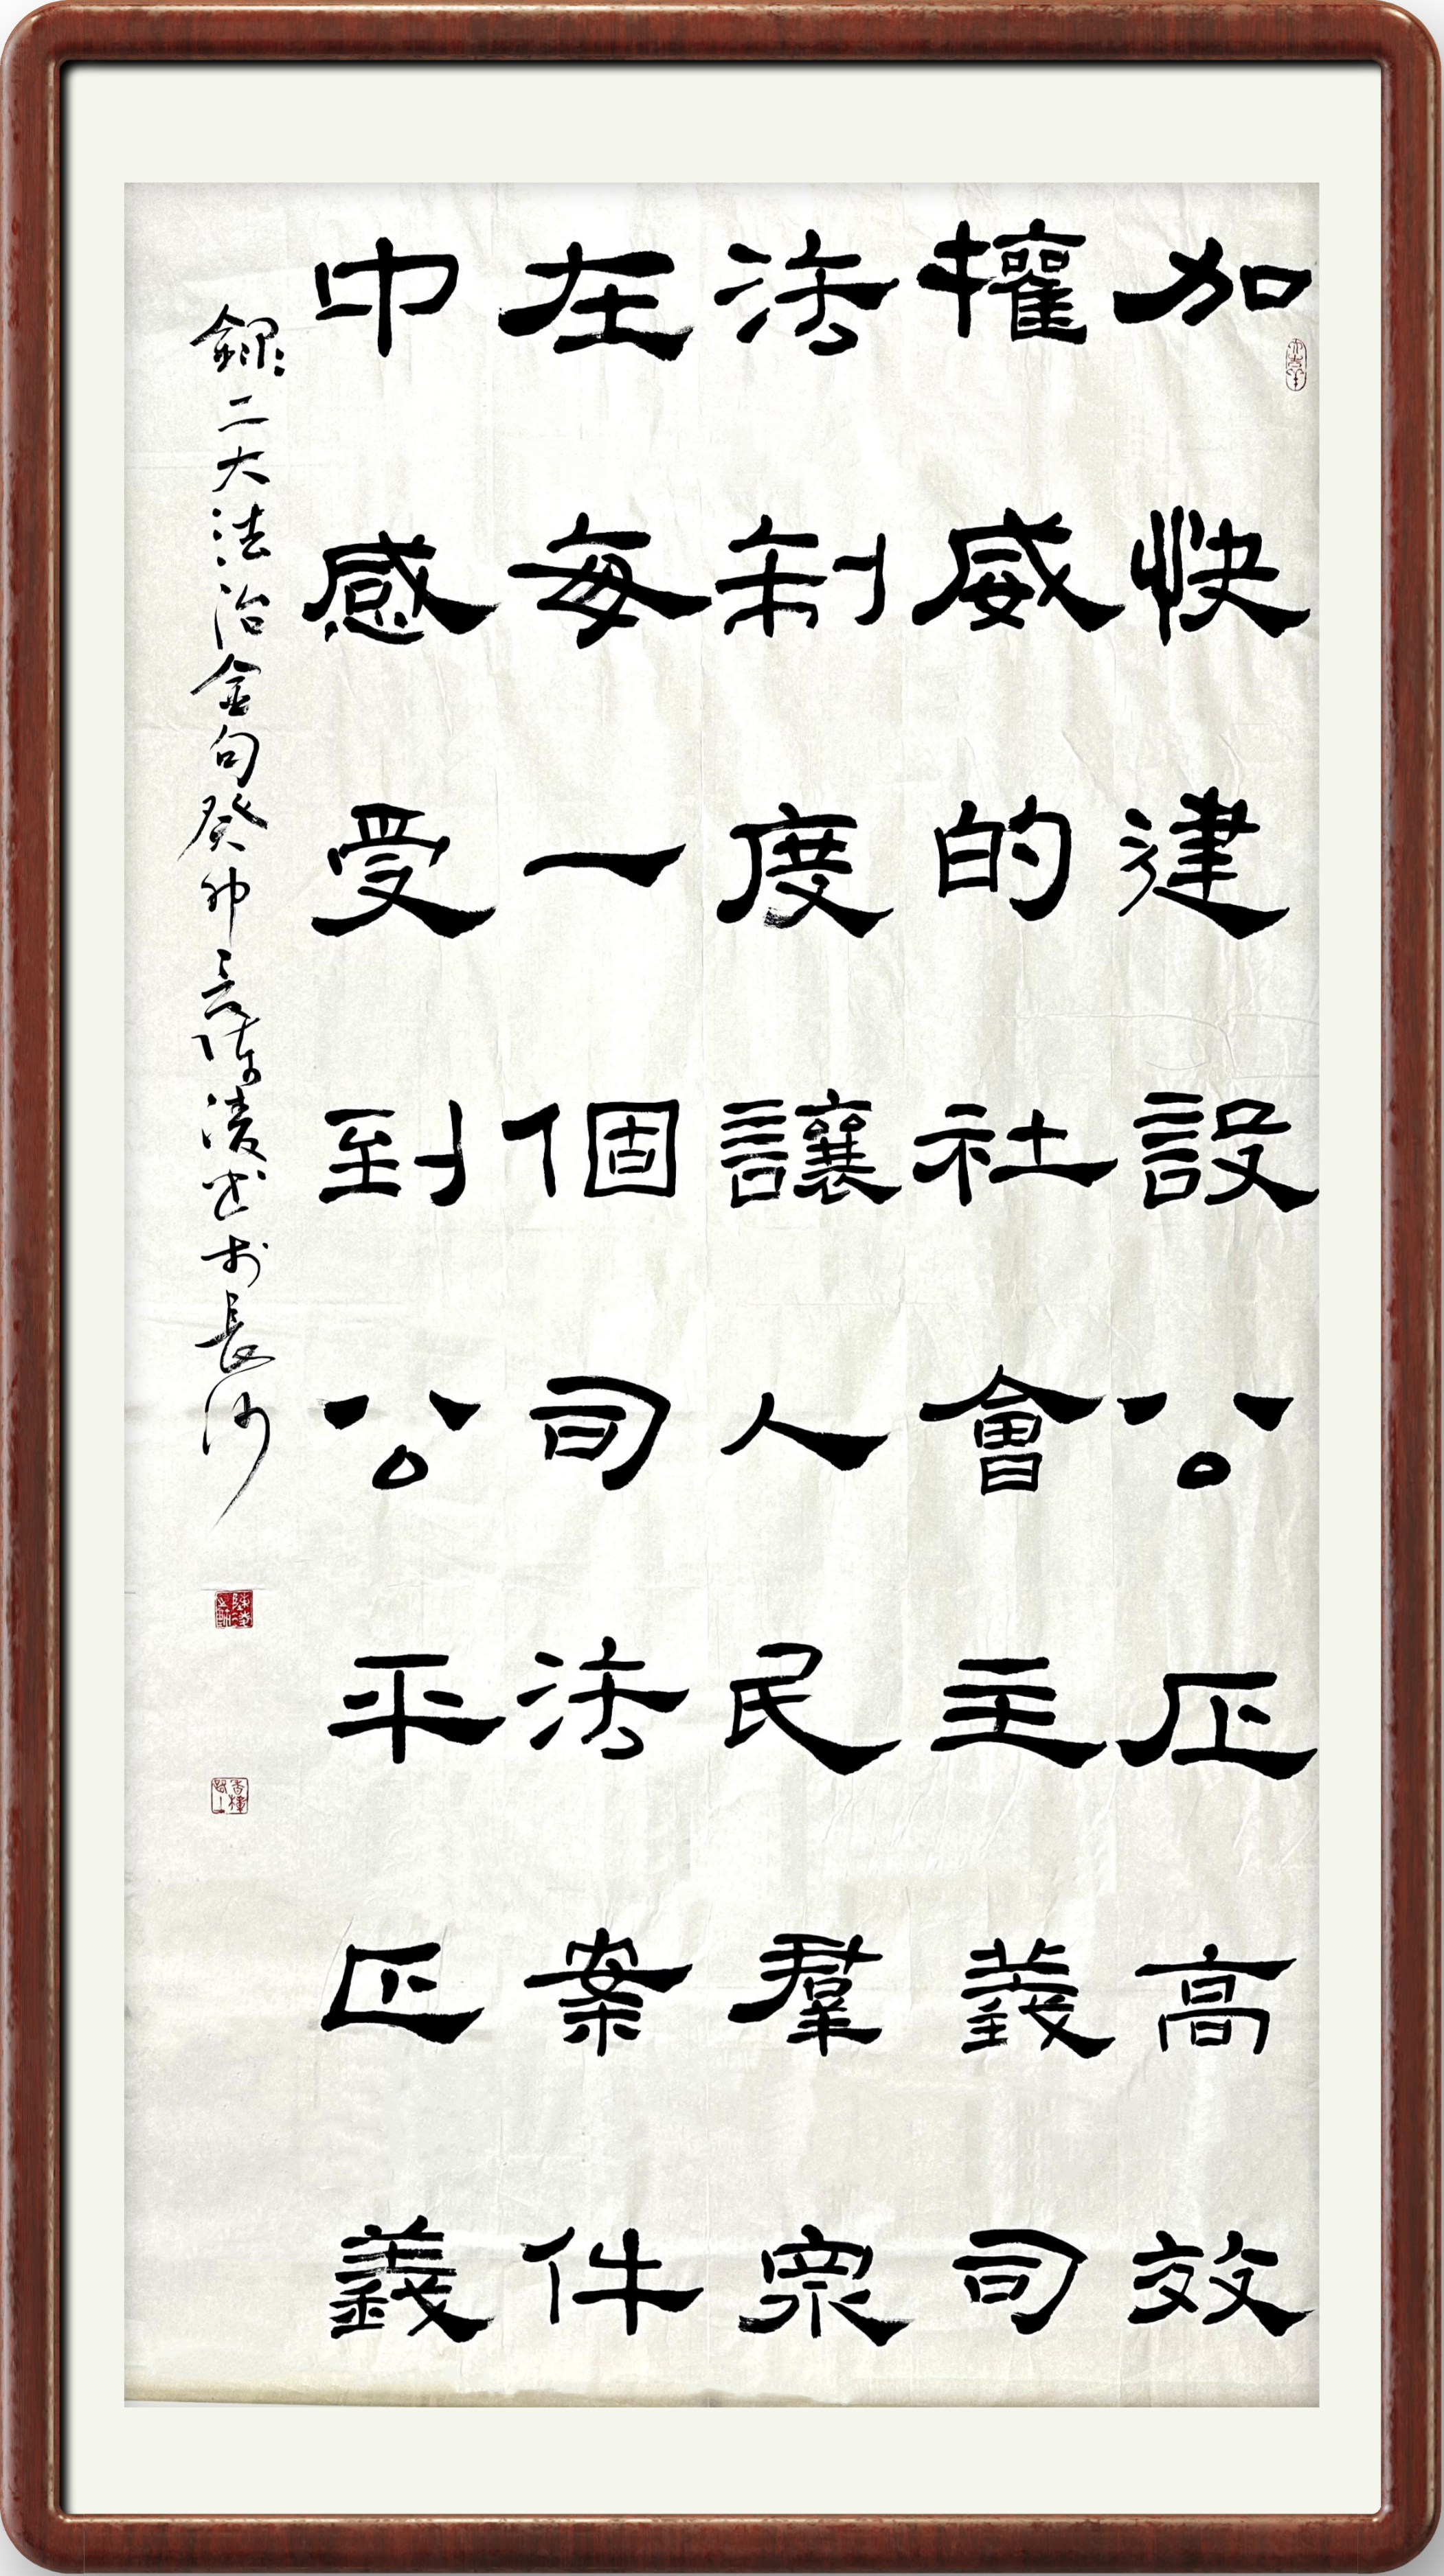 加快建設公正高效
權威的社會主義司
法制度讓人民群眾
在每一個司法案件
中感受到公平正義
錄二大法治金句癸卯夏陳凌書於長沙